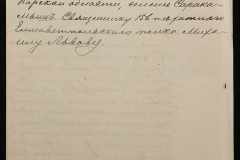 Карской области, селеніе Сарака-
мышъ. Священнику 156 пѣхотнаго
Елисаветпольскаго полка Миха-
илу Львову.